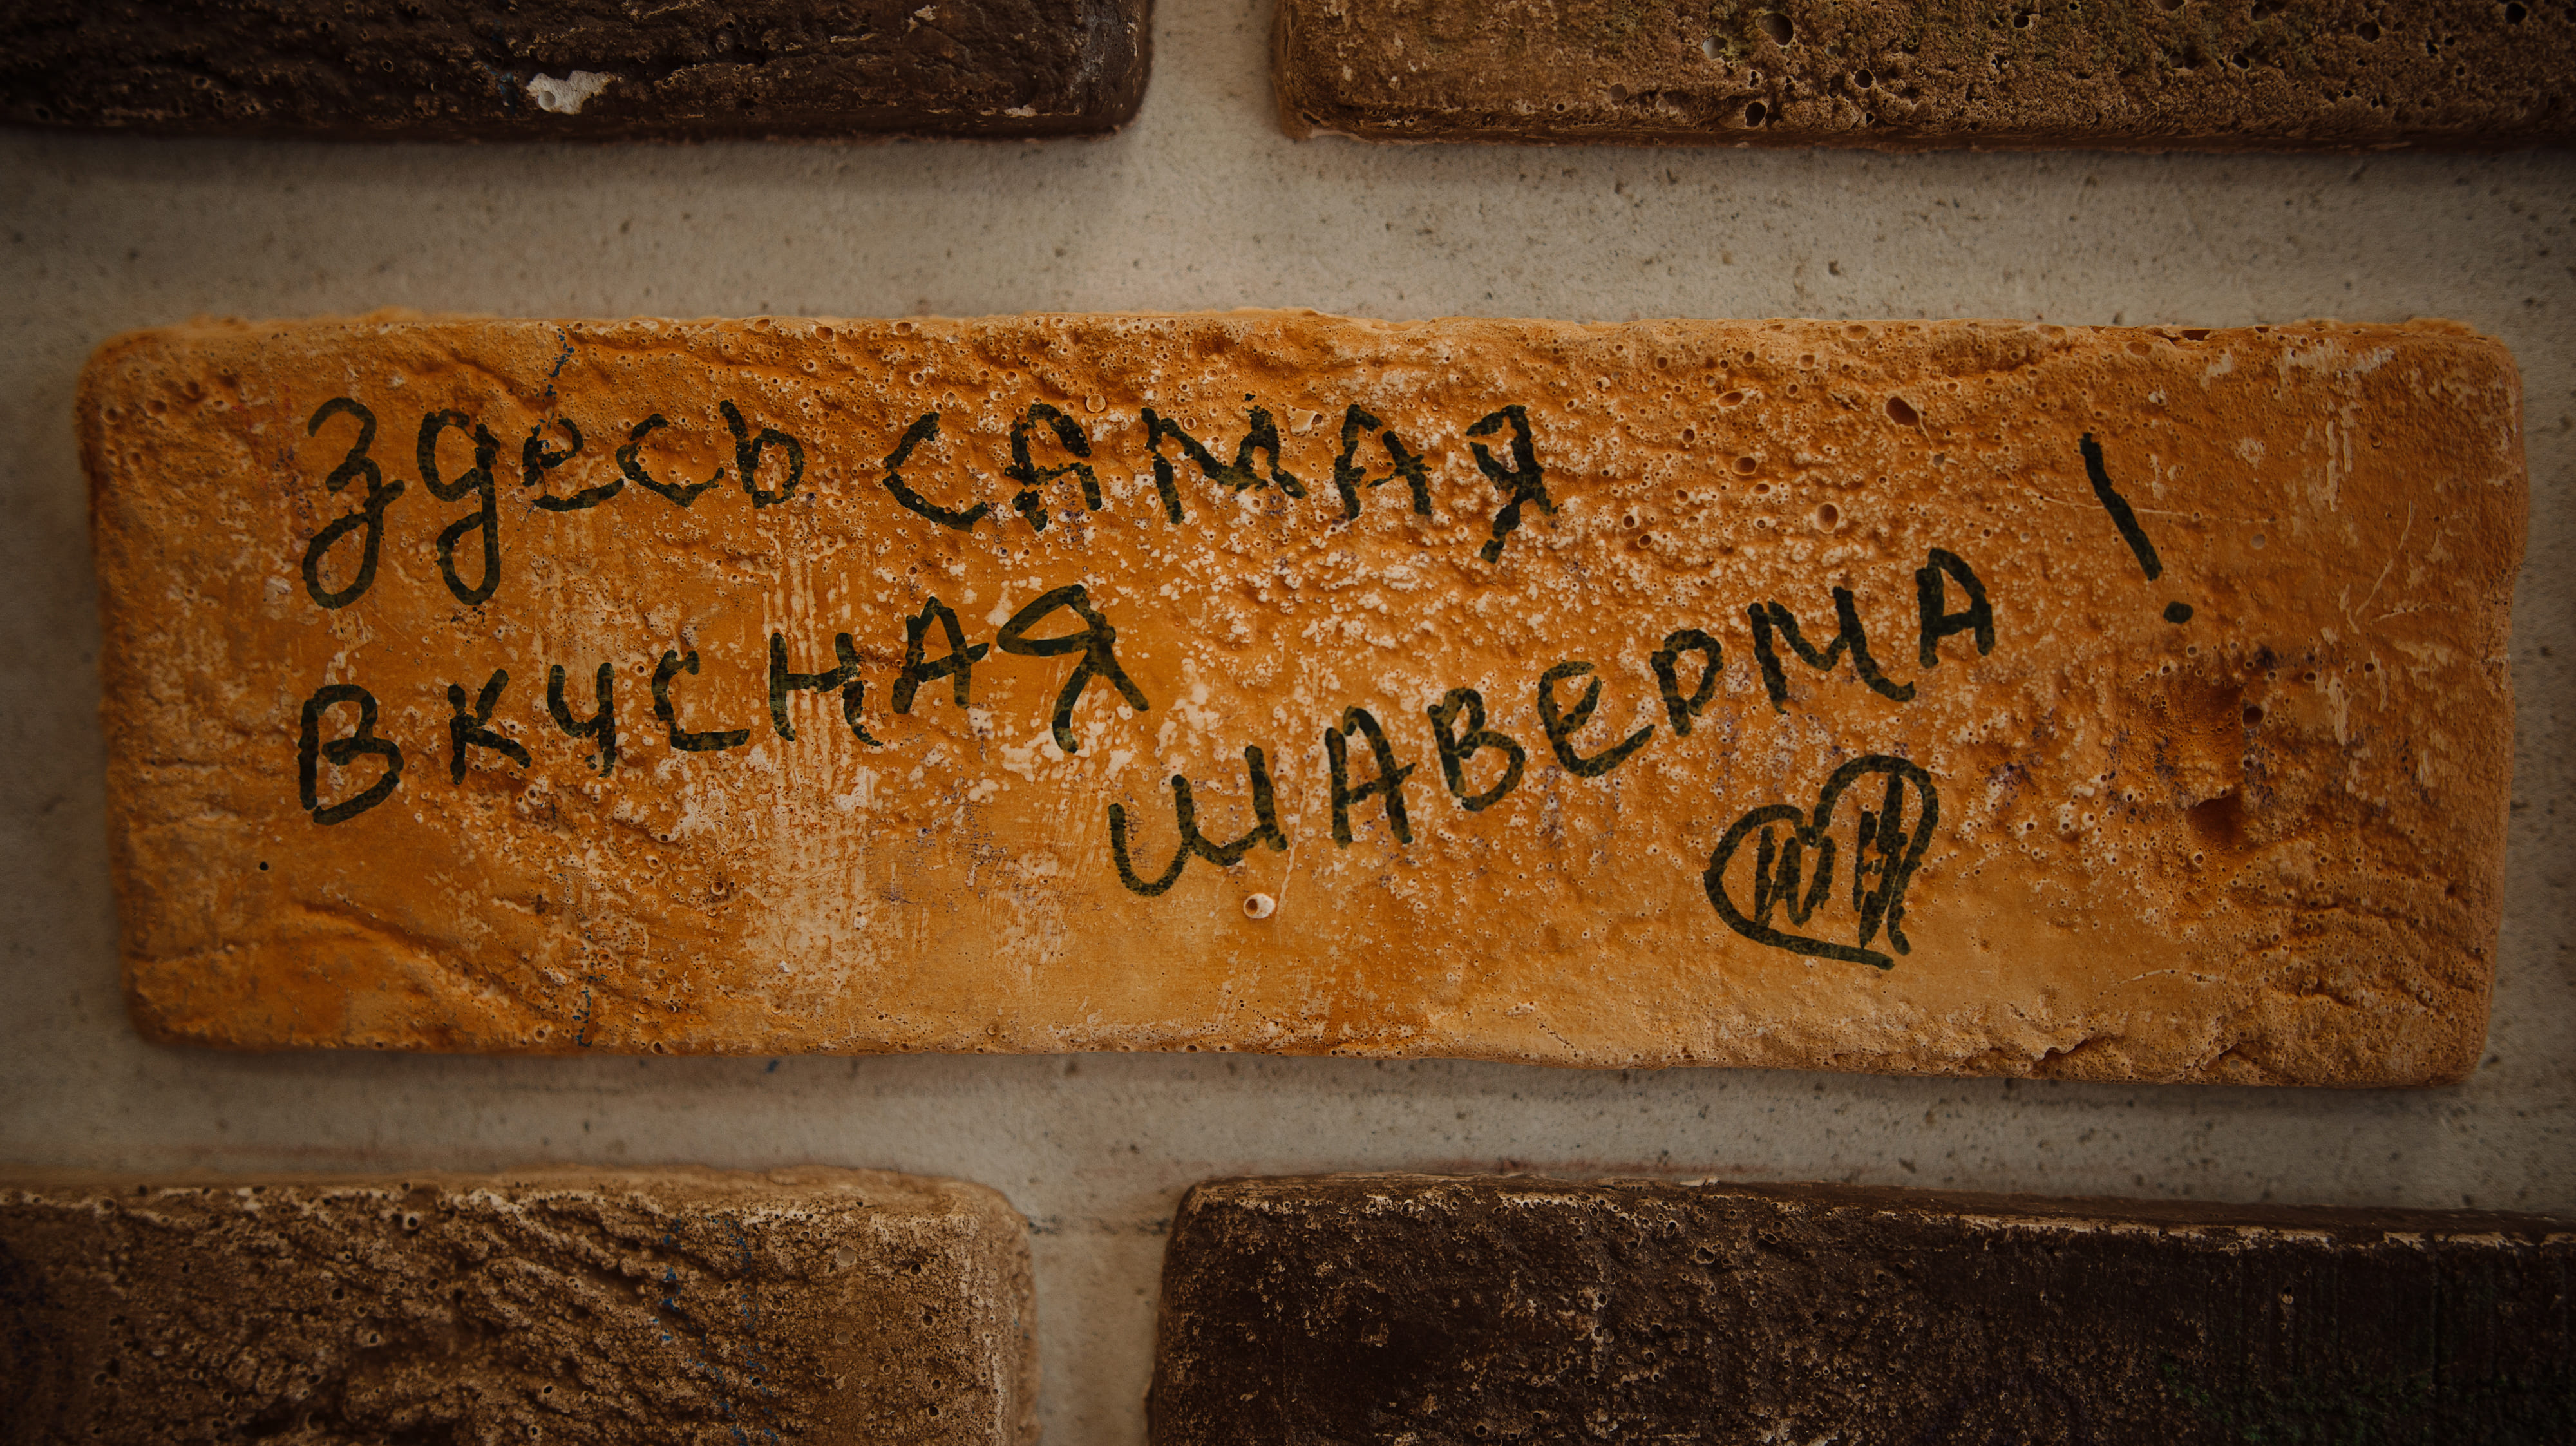 Здесь самая
вкусная
шаверма!